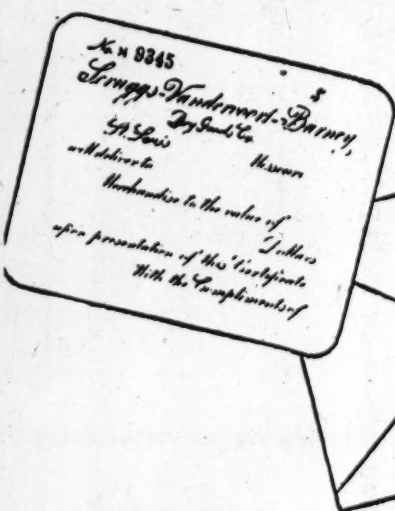 No. H 9345
$
Scruggs-Vandervoort-Barney,
Dry Goods Co.
St. Louis Missouri
will deliver to
Merchandise to the value of
Dollars
upon presentation of this Certificate
With the Compliments of